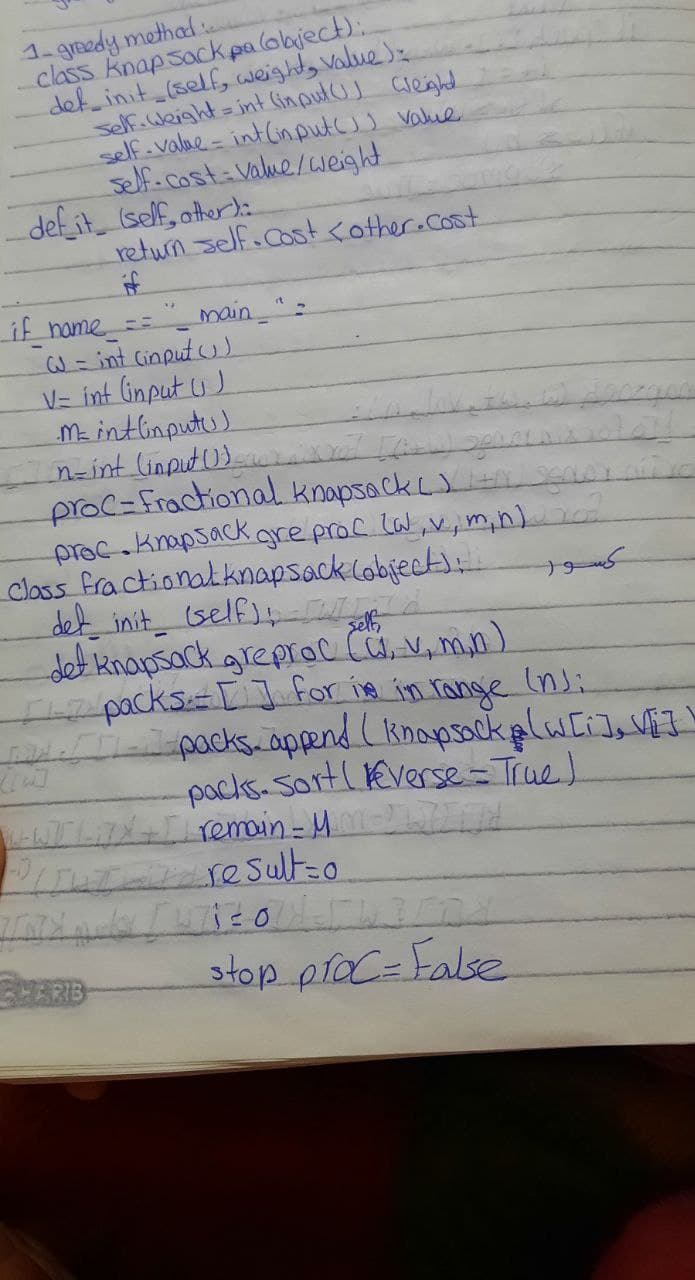 1- greedy method:
class Knapsack pa(object):
def_init_(self, weight, value):
self.weight=int(input()) weight
self.value=int(input()) value
self.cost=value/weight
def_it_ (self, other):
return self.cost <other.cost
if
if_name_== "_main_" =
w = int (input())
v= int (input())
m= int(input())
n=int (input())
proc=fractional knapsack()
proc.knapsack gre proc (w,v,m,n)
class fractionalknapsack(object): كسور
def_ init_ (self):
def knapsack greproc (self, w, v, m,n)
packs=[ ] for i in range (n):
packs.append(knapsack p(w[i], v[i])
packs.sort(reverse=True)
remain=M
result=0
i=0
stop proc=False